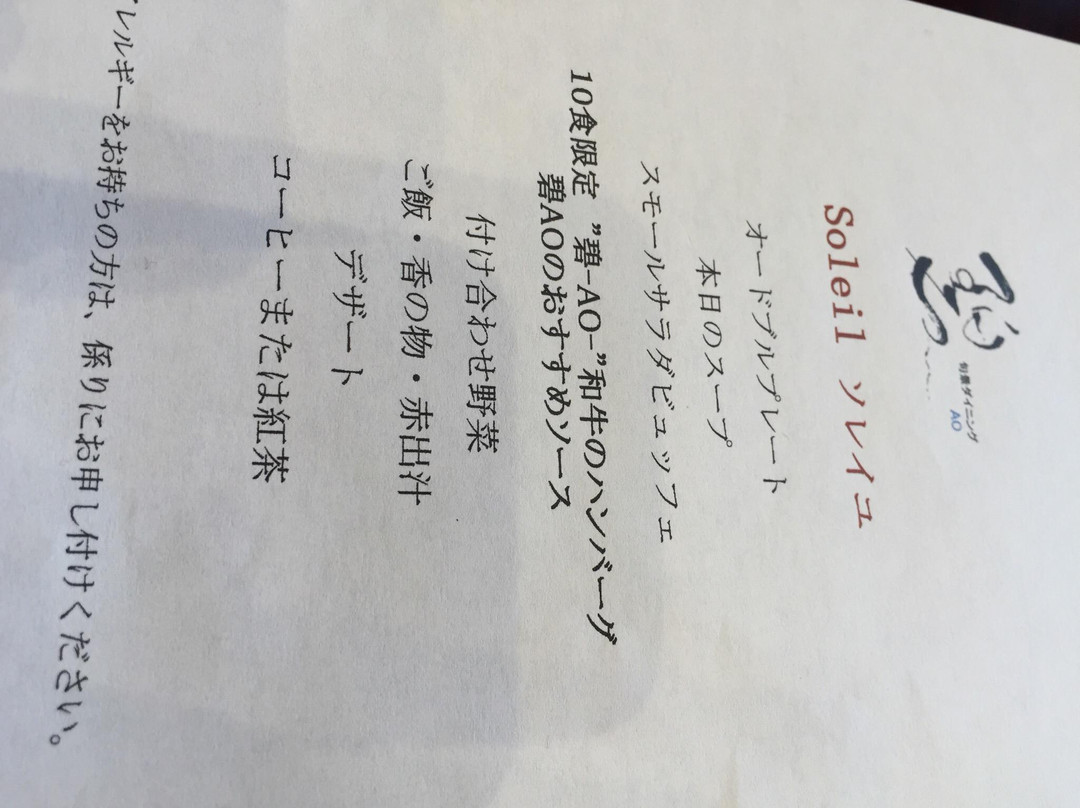 旬景ダイニング
AO
Soleil ソレイユ
オードブルプレート
本日のスープ
スモールサラダビュッフェ
10食限定 ”碧-AO-”和牛のハンバーグ
碧AOのおすすめソース
付け合わせ野菜
ご飯・香の物・赤出汁
デザート
コーヒーまたは紅茶
レルギーをお持ちの方は、係りにお申し付けください。